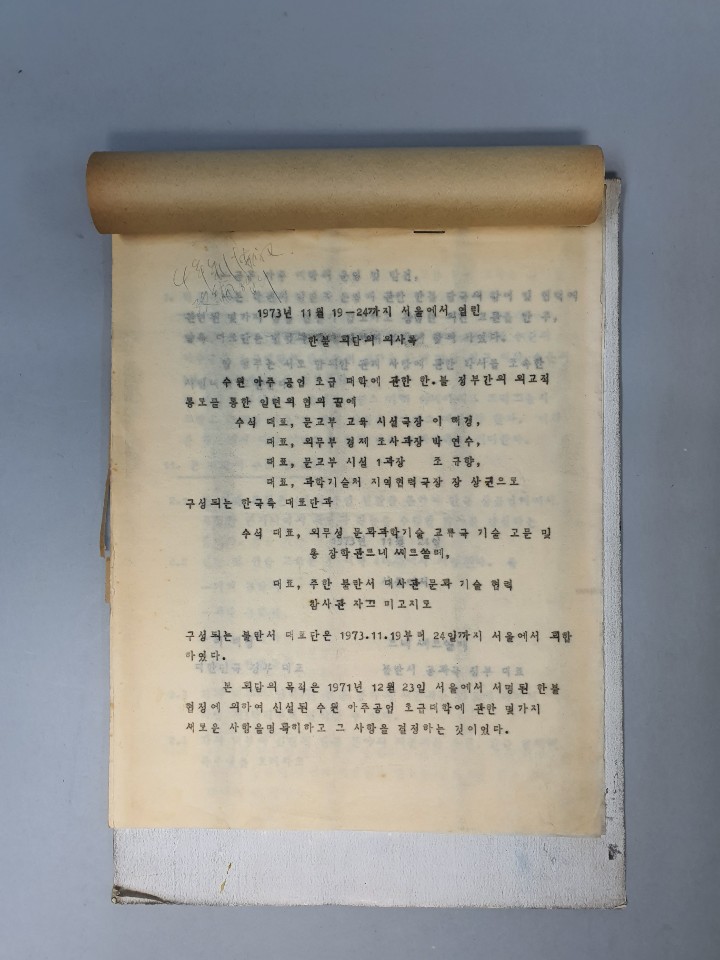 1973년 11월 19-24까지 서울에서 열린
한불 회담의 의사록
수원 아주 공업 초급 대학에 관한 한.불 정부간의 외교적
통로를 통한 일련의 협의 끝에
수석 대표, 문교부 교육 시설국장 이 매경,
대표, 외무부 경제 조사과장 박 연수,
대표, 문교부 시설 1과장 조 규향,
대표, 과학기술처 지역협력국장 장 상권으로
구성되는 한국측 대표단과
수석 대표, 외무성 문화과학기술 교류국 기술 고문 및
통 장학관르네 씨르쏠레,
대표, 주한 불란서 대사관 문화 기술 협력
참사관 자끄 미고지모
구성되는 불란서 대표단은 1973.11.19부터 24일까지 서울에서 회합
하였다.
본 회담의 목적은 1971년 12월 23일 서울에서 서명된 한불
협정에 의하여 신설된 수원 아주공업 초급대학에 관한 몇가지
새로운 사항을명확히하고 그 사항을 결정하는 것이였다.